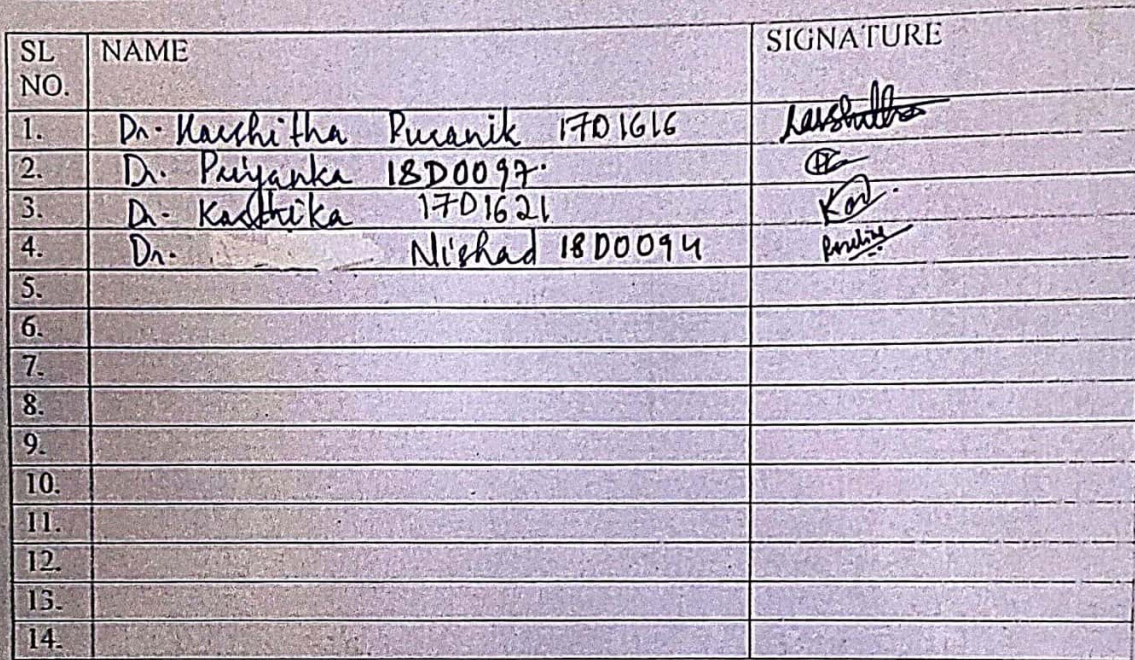 SL NO. NAME SIGNATURE
1. Dr. Harshitha Puranik 17D1616 Harshitha
2. Dr. Priyanka 18D0097.
3. Dr. Karthika 17D1621
4. Dr. Nishad 18D0094
5.
6.
7.
8.
9.
10.
11.
12.
13.
14.